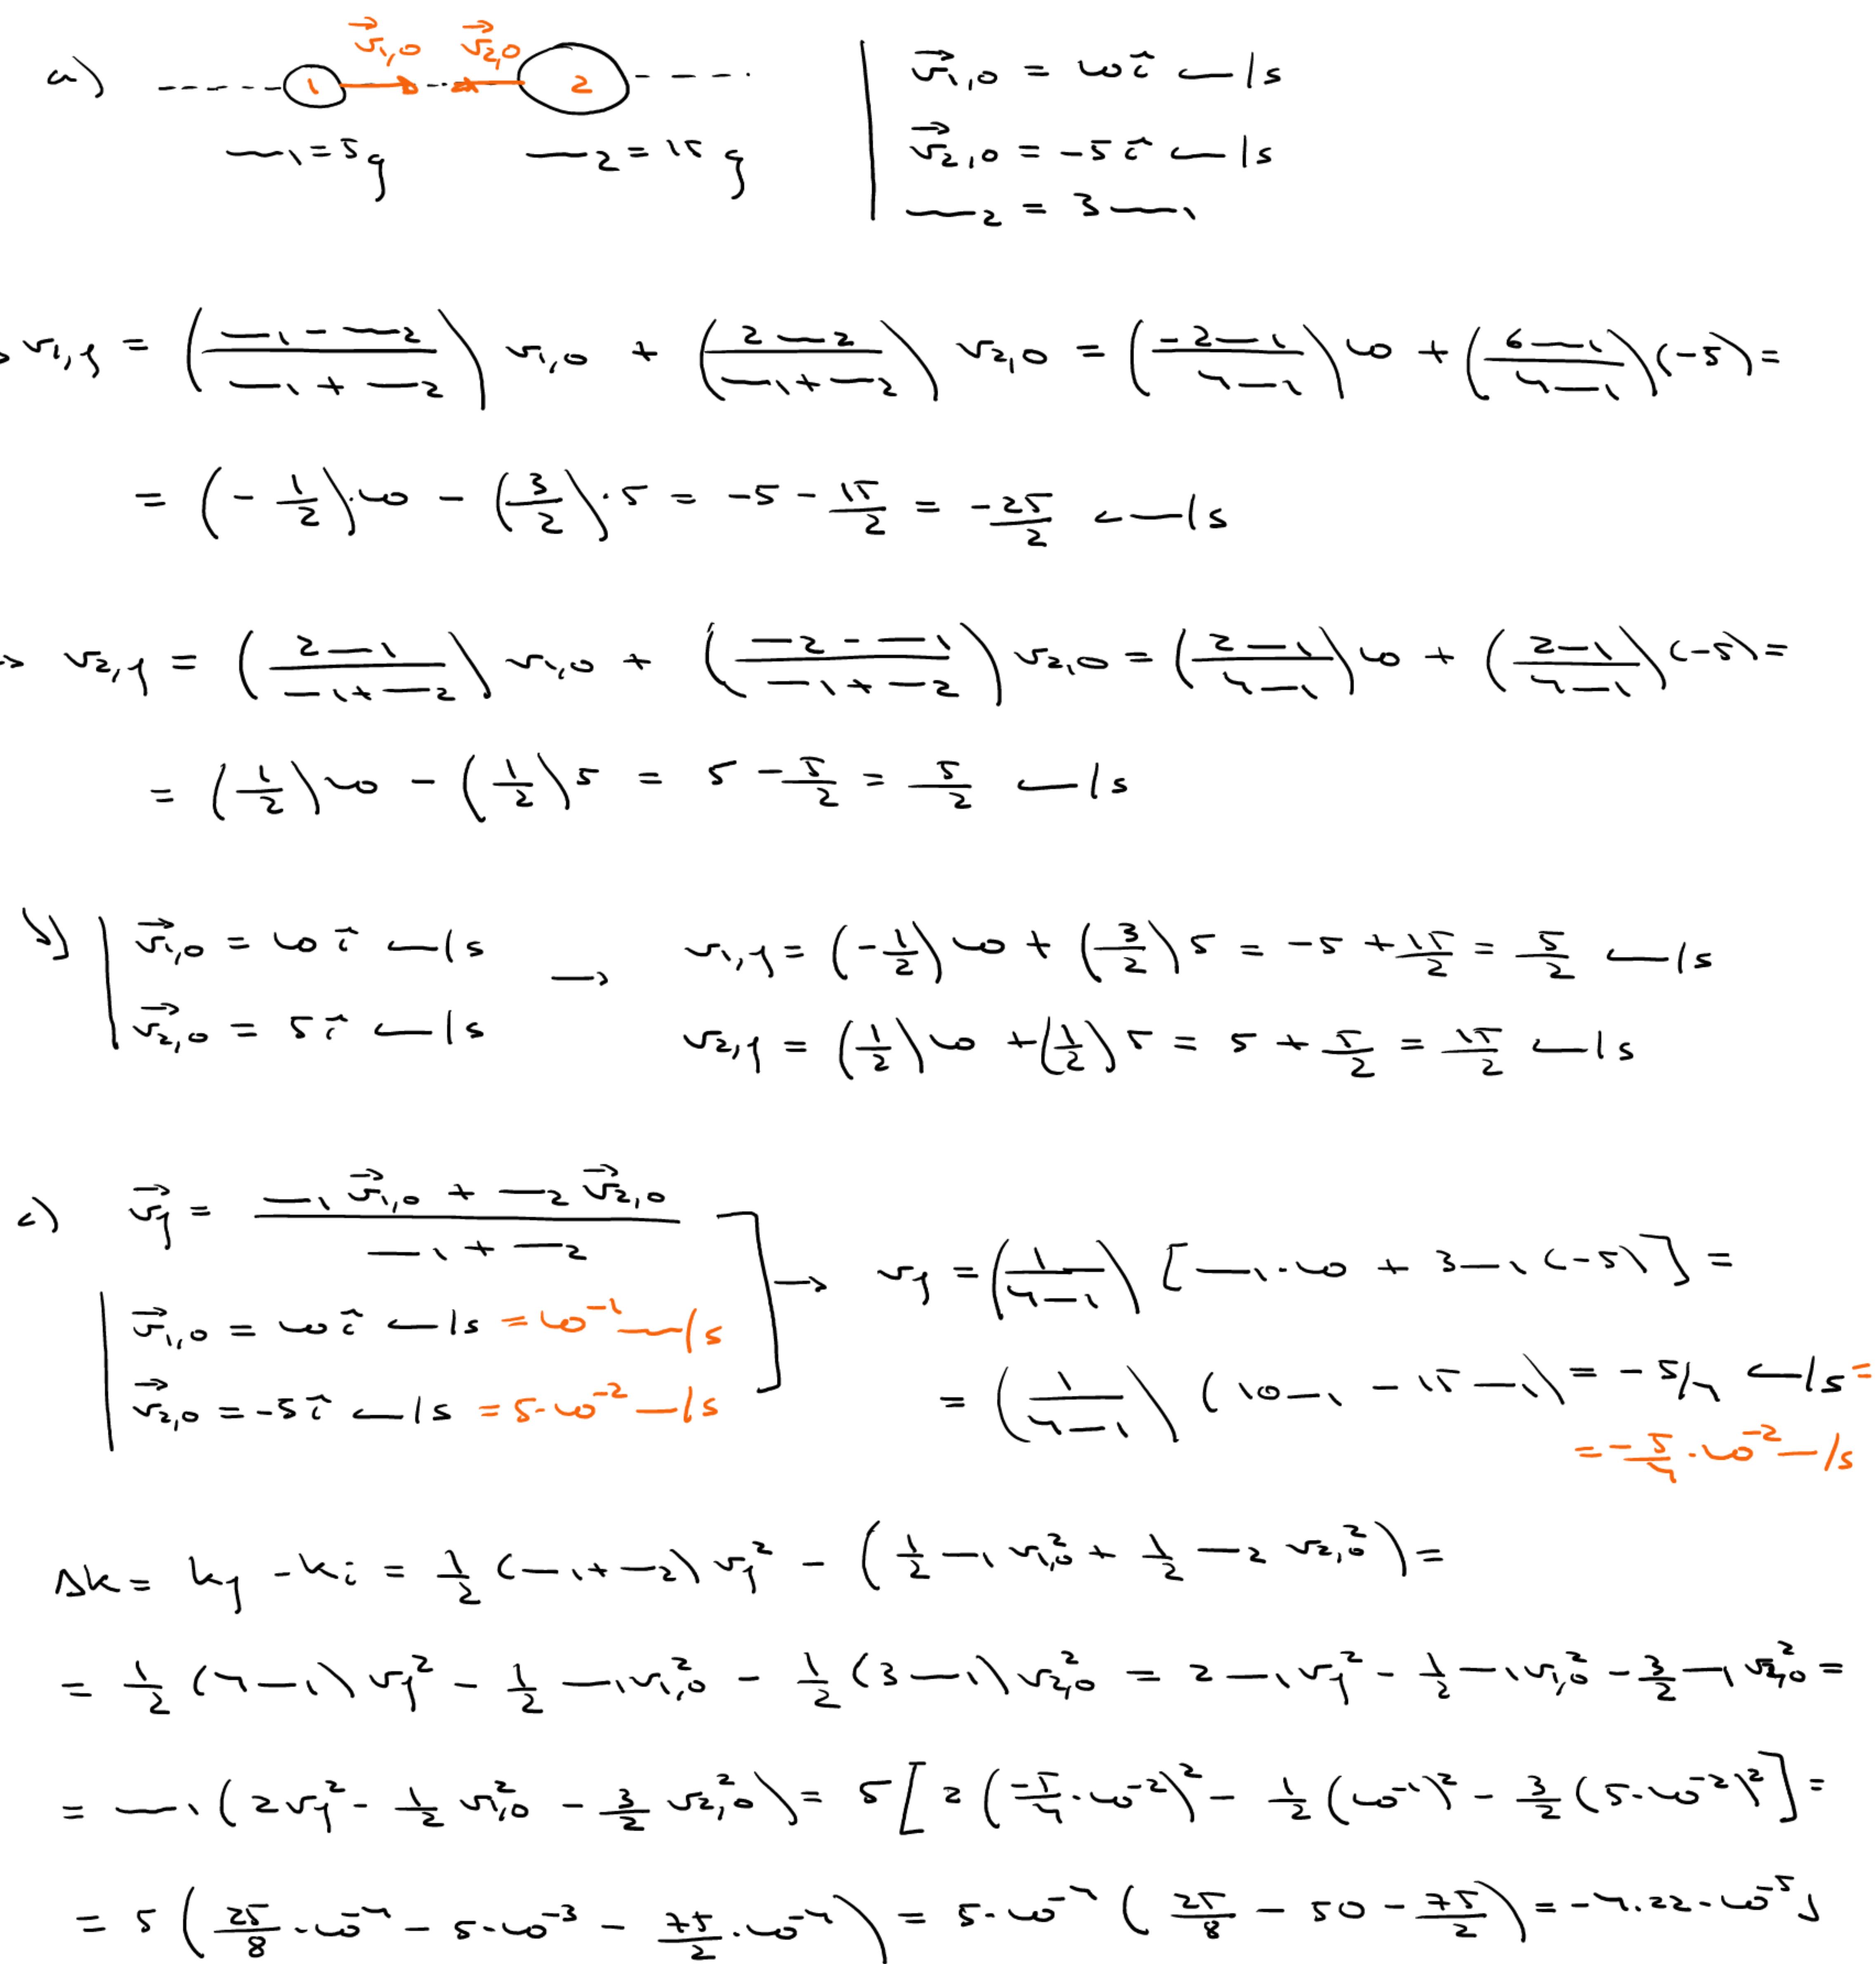 a) 1 v⃗₁,₀ v⃗₂,₀ 2 | v⃗₁,₀ = 10 î cm/s
m₁ = 5 g m₂ = 15 g | v⃗₂,₀ = -5 î cm/s
m₂ = 3m₁
→ v₁,f = ((m₁ - m₂)/(m₁ + m₂)) v₁,₀ + (2m₂/(m₁ + m₂)) v₂,₀ = (-2m₁/4m₁) 10 + (6m₁/4m₁)(-5) =
= (-1/2)·10 - (3/2)·5 = -5 - 15/2 = -25/2 cm/s
→ v₂,f = (2m₁/(m₁ + m₂)) v₁,₀ + ((m₂ - m₁)/(m₁ + m₂)) v₂,₀ = (2m₁/4m₁) 10 + (2m₁/4m₁)(-5) =
= (1/2) 10 - (1/2) 5 = 5 - 5/2 = 5/2 cm/s
b) | v⃗₁,₀ = 10 î cm/s → v₁,f = (-1/2) 10 + (3/2) 5 = -5 + 15/2 = 5/2 cm/s
| v⃗₂,₀ = 5 î cm/s v₂,f = (1/2) 10 + (1/2) 5 = 5 + 5/2 = 15/2 cm/s
c) v⃗f = (m₁ v⃗₁,₀ + m₂ v⃗₂,₀)/(m₁ + m₂) → vf = (1/4m₁) [m₁·10 + 3m₁(-5)] =
| v⃗₁,₀ = 10 î cm/s = 10⁻¹ m/s
| v⃗₂,₀ = -5 î cm/s = 5·10⁻² m/s = (1/4m₁) (10m₁ - 15m₁) = -5/4 cm/s =
= -5/4·10⁻² m/s
ΔK = Kf - Ki = 1/2 (m₁ + m₂) vf² - (1/2 m₁ v₁,₀² + 1/2 m₂ v₂,₀²) =
= 1/2 (4m₁) vf² - 1/2 m₁ v₁,₀² - 1/2 (3m₁) v₂,₀² = 2m₁ vf² - 1/2 m₁ v₁,₀² - 3/2 m₁ v₂,₀² =
= m₁ (2vf² - 1/2 v₁,₀² - 3/2 v₂,₀²) = 5 [2 (-5/4·10⁻²)² - 1/2 (10⁻¹)² - 3/2 (5·10⁻²)²] =
= 5 (25/8·10⁻⁴ - 5·10⁻³ - 75/2·10⁻⁴) = 5·10⁻⁴ (25/8 - 50 - 75/2) = -4.22·10⁻⁵ J